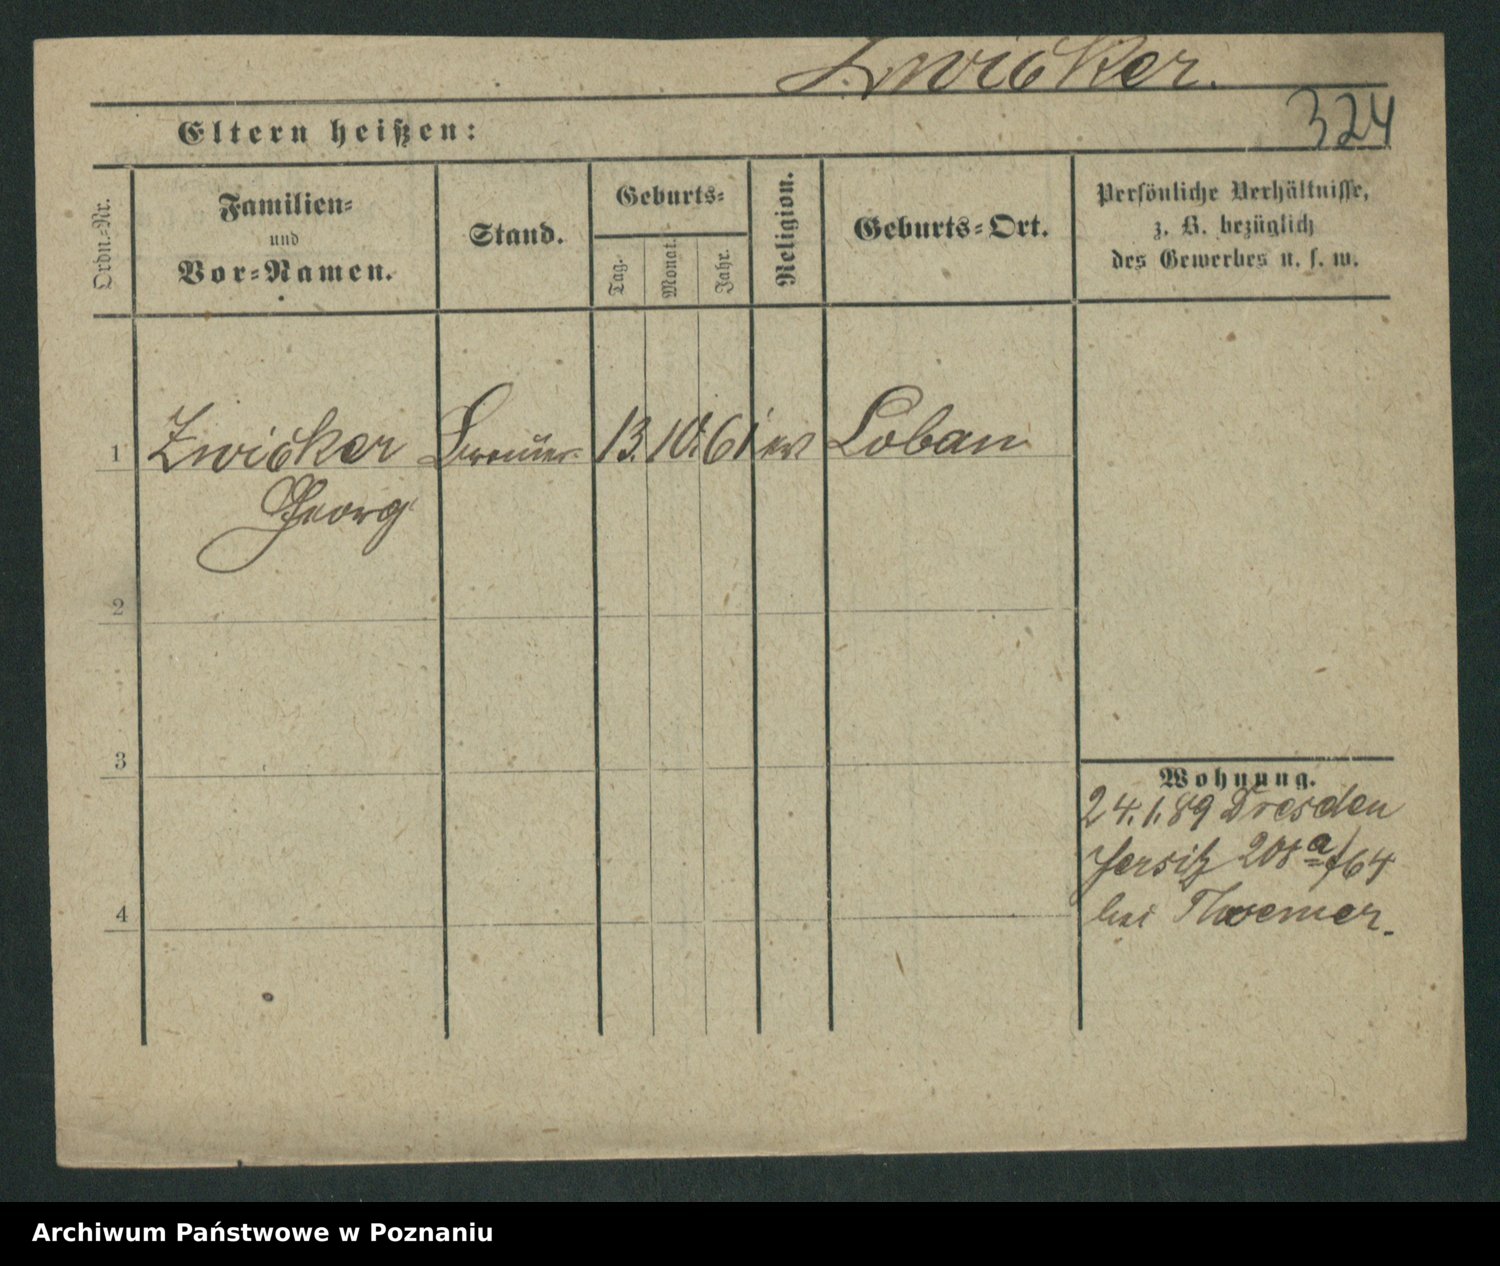 Zwicker.
324
Eltern heißen:
Ordn.-Nr.
Familien-
und
Vor-Namen.
Stand.
Geburts-
Tag.
Monat.
Jahr.
Religion.
Geburts-Ort.
Persönliche Verhältnisse,
z. B. bezüglich
des Gewerbes u. s. w.
1 Zwicker 13. 10. 61 ev Loban
Georg
2
3
4
Wohnung.
24.1.89 Dresden
Jersitz 208a/64
bei
Archiwum Państwowe w Poznaniu